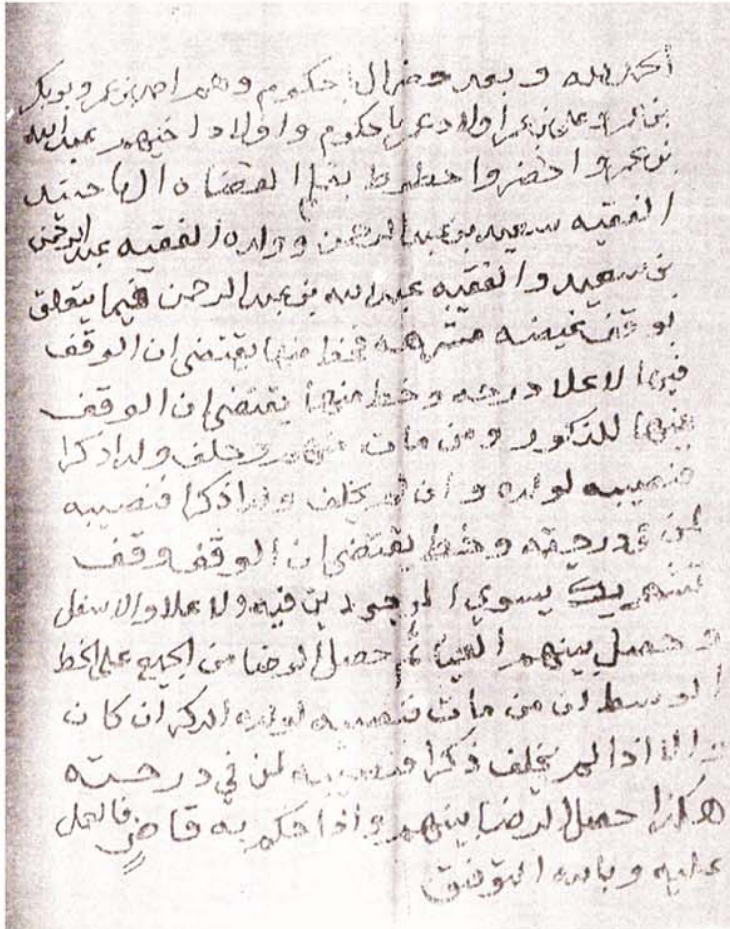 الحمد لله وبعد حضر ال باحكوم وهم احمد بن عمر وبوبكر
بن عمر وعلي بن عمر اولاد عمر باحكوم واولاد اخيهم عبدالله
بن عمر واحضروا خطوط بقلم القضاة ال باحنشد
الفقيه سعيد بن عبد الرحمن وولده الفقيه عبد الرحمن
بن سعيد والفقيه عبد الله بن عبد الرحمن فيما يتعلق
بوقف غيضه فخط منها يقتضي ان الوقف
فيها لاعلا درجه وخط منها يقتضي ان الوقف
فيها للذكور ومن مات منهم وخلف ولدا ذكرا
فنصيبه لولده وان لم يخلف ولدا ذكرا فنصيبه
لمن في درجته وخط يقتضي ان الوقف وقف
تشريك يسوي الموجودين فيه ولا علا والاسفل
وحصل بينهم ثم حصل الرضا من الجميع على الخط
الوسط ان من مات فنصيبه لولده الذكر ان كان
والا اذا لم يخلف ذكرا فنصيبه لمن في درجته
هكذا حصل الرضا بينهم واذا حكم به قاضٍ فالعمل
عليه وبالله التوفيق